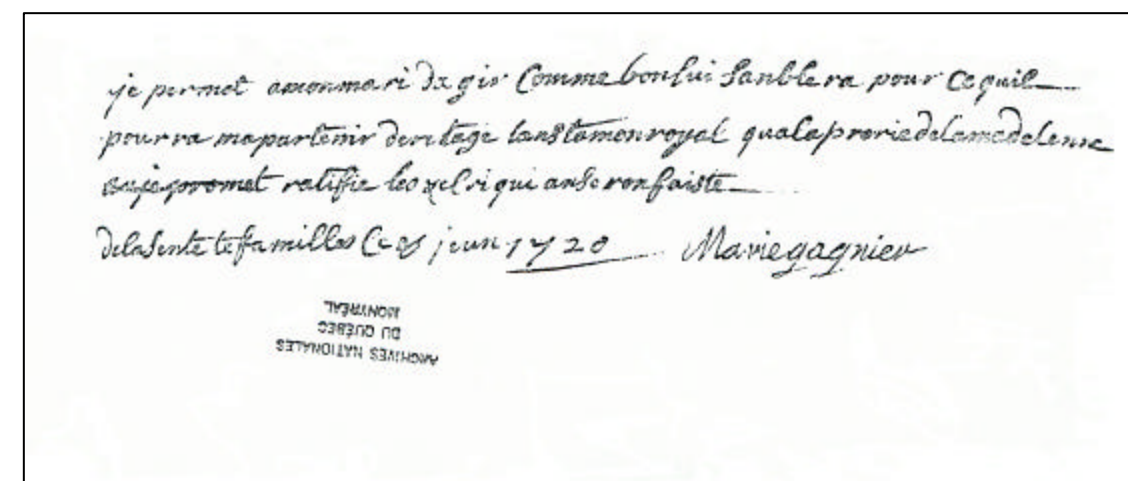 je permet amonmari da gir Comme bon lui Sanblera pour Ce quil
pourra mapartenir deritage tanstamonroyal qualaprerie delamadelene
aije promet ratifie les qui an seron faiste
delasente te familles Ce 8 juun 1720 Marie gagnier
ARCHIVES NATIONALES
DU QUÉBEC
MONTRÉAL